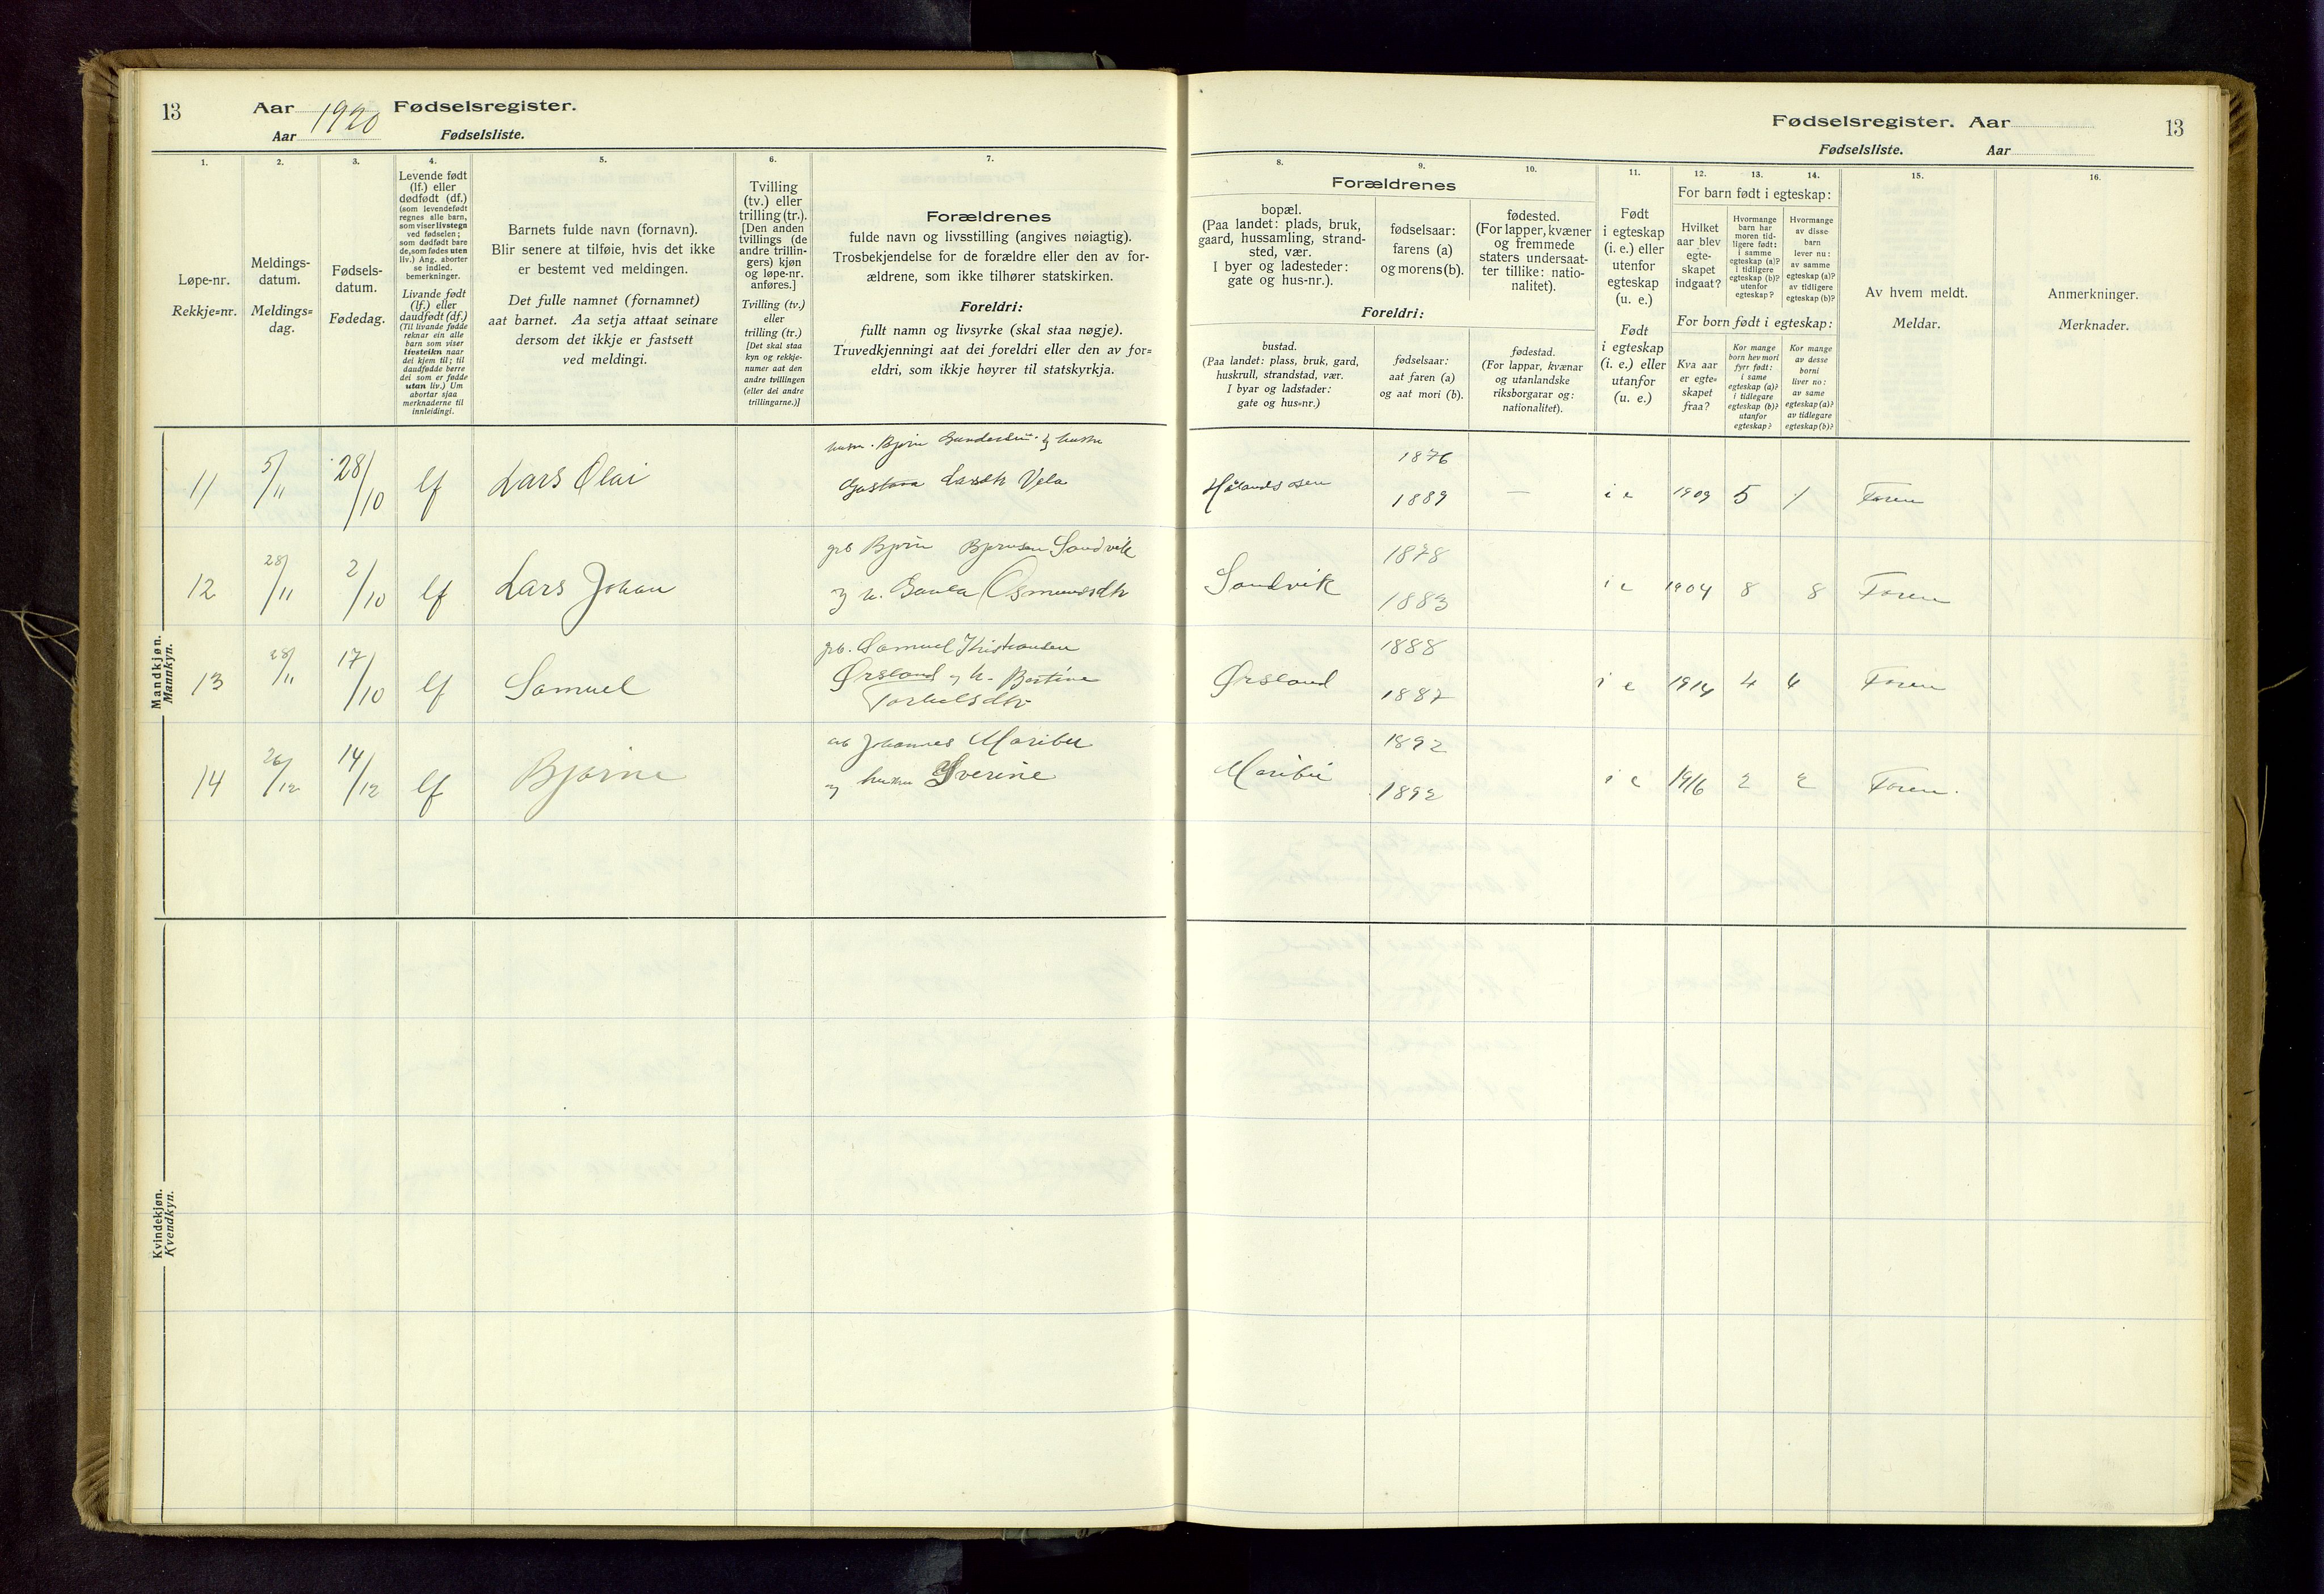 13 Aar 1920 Fødselsregister.
Aar Fødselsliste.
1. 2. 3. 4. 5. 6. 7.
Løpe-nr.
Rekkje=nr.
Meldings-
datum.
Meldings=
dag.
Fødsels-
datum.
Fødedag.
Levende født
(lf.) eller
dødfødt (df.)
(som levendefødt
regnes alle barn,
som viser livstegn
ved fødselen;
som dødfødt bare
de, som fødes uten
liv.) Ang. aborter
se indled.
bemerkninger.
Livande født
(lf.) eller
daudfødt (df.)
(Til livande fødde
reknar ein alle
barn som viser
livsteikn naar
dei kjem til; til
daudfødde berre
dei som er fødde
utan liv.) Um
abortar sjaa
merknaderne til
innleidingi.
Barnets fulde navn (fornavn).
Blir senere at tilføie, hvis det ikke
er bestemt ved meldingen.
Det fulle namnet (fornamnet)
aat barnet. Aa setja attaat seinare
dersom det ikkje er fastsett
ved meldingi.
Tvilling
(tv.) eller
trilling (tr.).
[Den anden
tvillings (de
andre trillin-
gers) kjøn
og løpe-nr.
anføres.]
Tvilling (tv.)
eller
trilling (tr.)
[Det skal staa
kyn og rekkje-
numer aat den
andre tvillingen
(eller dei andre
trillingarne.)]
Forældrenes
fulde navn og livsstilling (angives nøiagtig).
Trosbekjendelse for de forældre eller den av for-
ældrene, som ikke tilhører statskirken.
Foreldri:
fullt namn og livsyrke (skal staa nøgje).
Truvedkjenningi aat dei foreldri eller den av for=
eldri, som ikkje høyrer til statskyrkja.
Mandkjøn.
Mannkyn.
11 5/11 28/10 lf Lars Olai
husm. Bjørn Gundersen og hustru
Gustava Larsdtr Vela
12 28/11 2/10 lf Lars Johan
grb Bjørn Bjørnsen Sandvik
og h. Gunla Osmundsdtr
13 28/11 17/10 lf Samuel
grb. Samuel Kristiansen
Ørsland og h. Bertine
Torkelsdtr
14 26/12 14/12 lf Bjarne
arb Johannes Maribu
og hustru Syverine
Kvindekjøn.
Kvendkyn.
Fødselsregister. Aar 13
Fødselsliste. Aar
8. 9. 10. 11. 12. 13. 14. 15. 16.
Forældrenes
bopæl.
(Paa landet: plads, bruk,
gaard, hussamling, strand-
sted, vær.
I byer og ladesteder:
gate og hus-nr.).
fødselsaar:
farens (a)
og morens (b).
fødested.
(For lapper, kvæner
og fremmede
staters undersaat-
ter tillike: natio-
nalitet).
Foreldri:
bustad.
(Paa landet: plass, bruk, gard,
huskrull, strandstad, vær.
I byar og ladstader:
gate og hus=nr.)
fødselsaar:
aat faren (a)
og aat mori (b).
fødestad.
(For lappar, kvænar
og utanlandske
riksborgarar og:
nationalitet).
Født
i egteskap
(i. e.) eller
utenfor
egteskap
(u. e.)
Født
i egteskap
(i. e.) eller
utanfor
(u. e.)
For barn født i egteskap:
Hvilket
aar blev
egte-
skapet
indgaat?
Hvormange
barn har
moren tid-
ligere født:
i samme
egteskap (a)?
i tidligere
egteskap (b)?
utenfor
egteskap?
Hvormange
av disse
barn
lever nu:
av samme
egteskap (a)?
av tidligere
egteskap (b)?
For born født i egteskap:
Kva aar
er egte=
skapet
fraa?
Kor mange
born hev mori
fyrr født:
i same
egteskap (a)?
i tidlegare
egteskap (b)?
utanfor
egteskap?
Kor mange
av desse
borni
liver no:
av same
egteskap (a)?
av tidlegare
egteskap (b)?
Av hvem meldt.
Meldar.
Anmerkninger.
Merknader.
Hålandsosen 1876
1889 — i e 1909 5 Faren
Sandvik 1878
1883 i e 1904 8 8 Faren
Ørsland 1888
1887 i e 1914 4 4 Faren
Maribu 1892
1892 i e 1916 2 2 Faren.